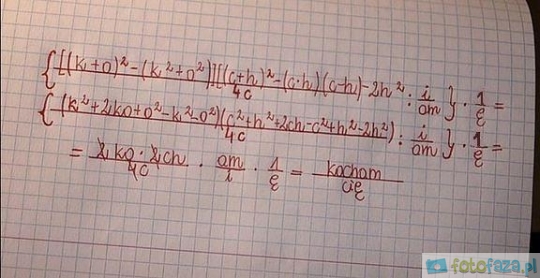 { [(k+o)²-(k²+o²)][(c+h)²-(c·h)(c-h)-2h² / 4c : i/am } · 1/ę =
{ (k²+2ko+o²-k²-o²)(c²+h²+2ch-c²+h²-2h²) / 4c : i/am } · 1/ę =
= 2ko·2ch / 4c · am/i · 1/ę = kocham / cię
fotofaza.pl